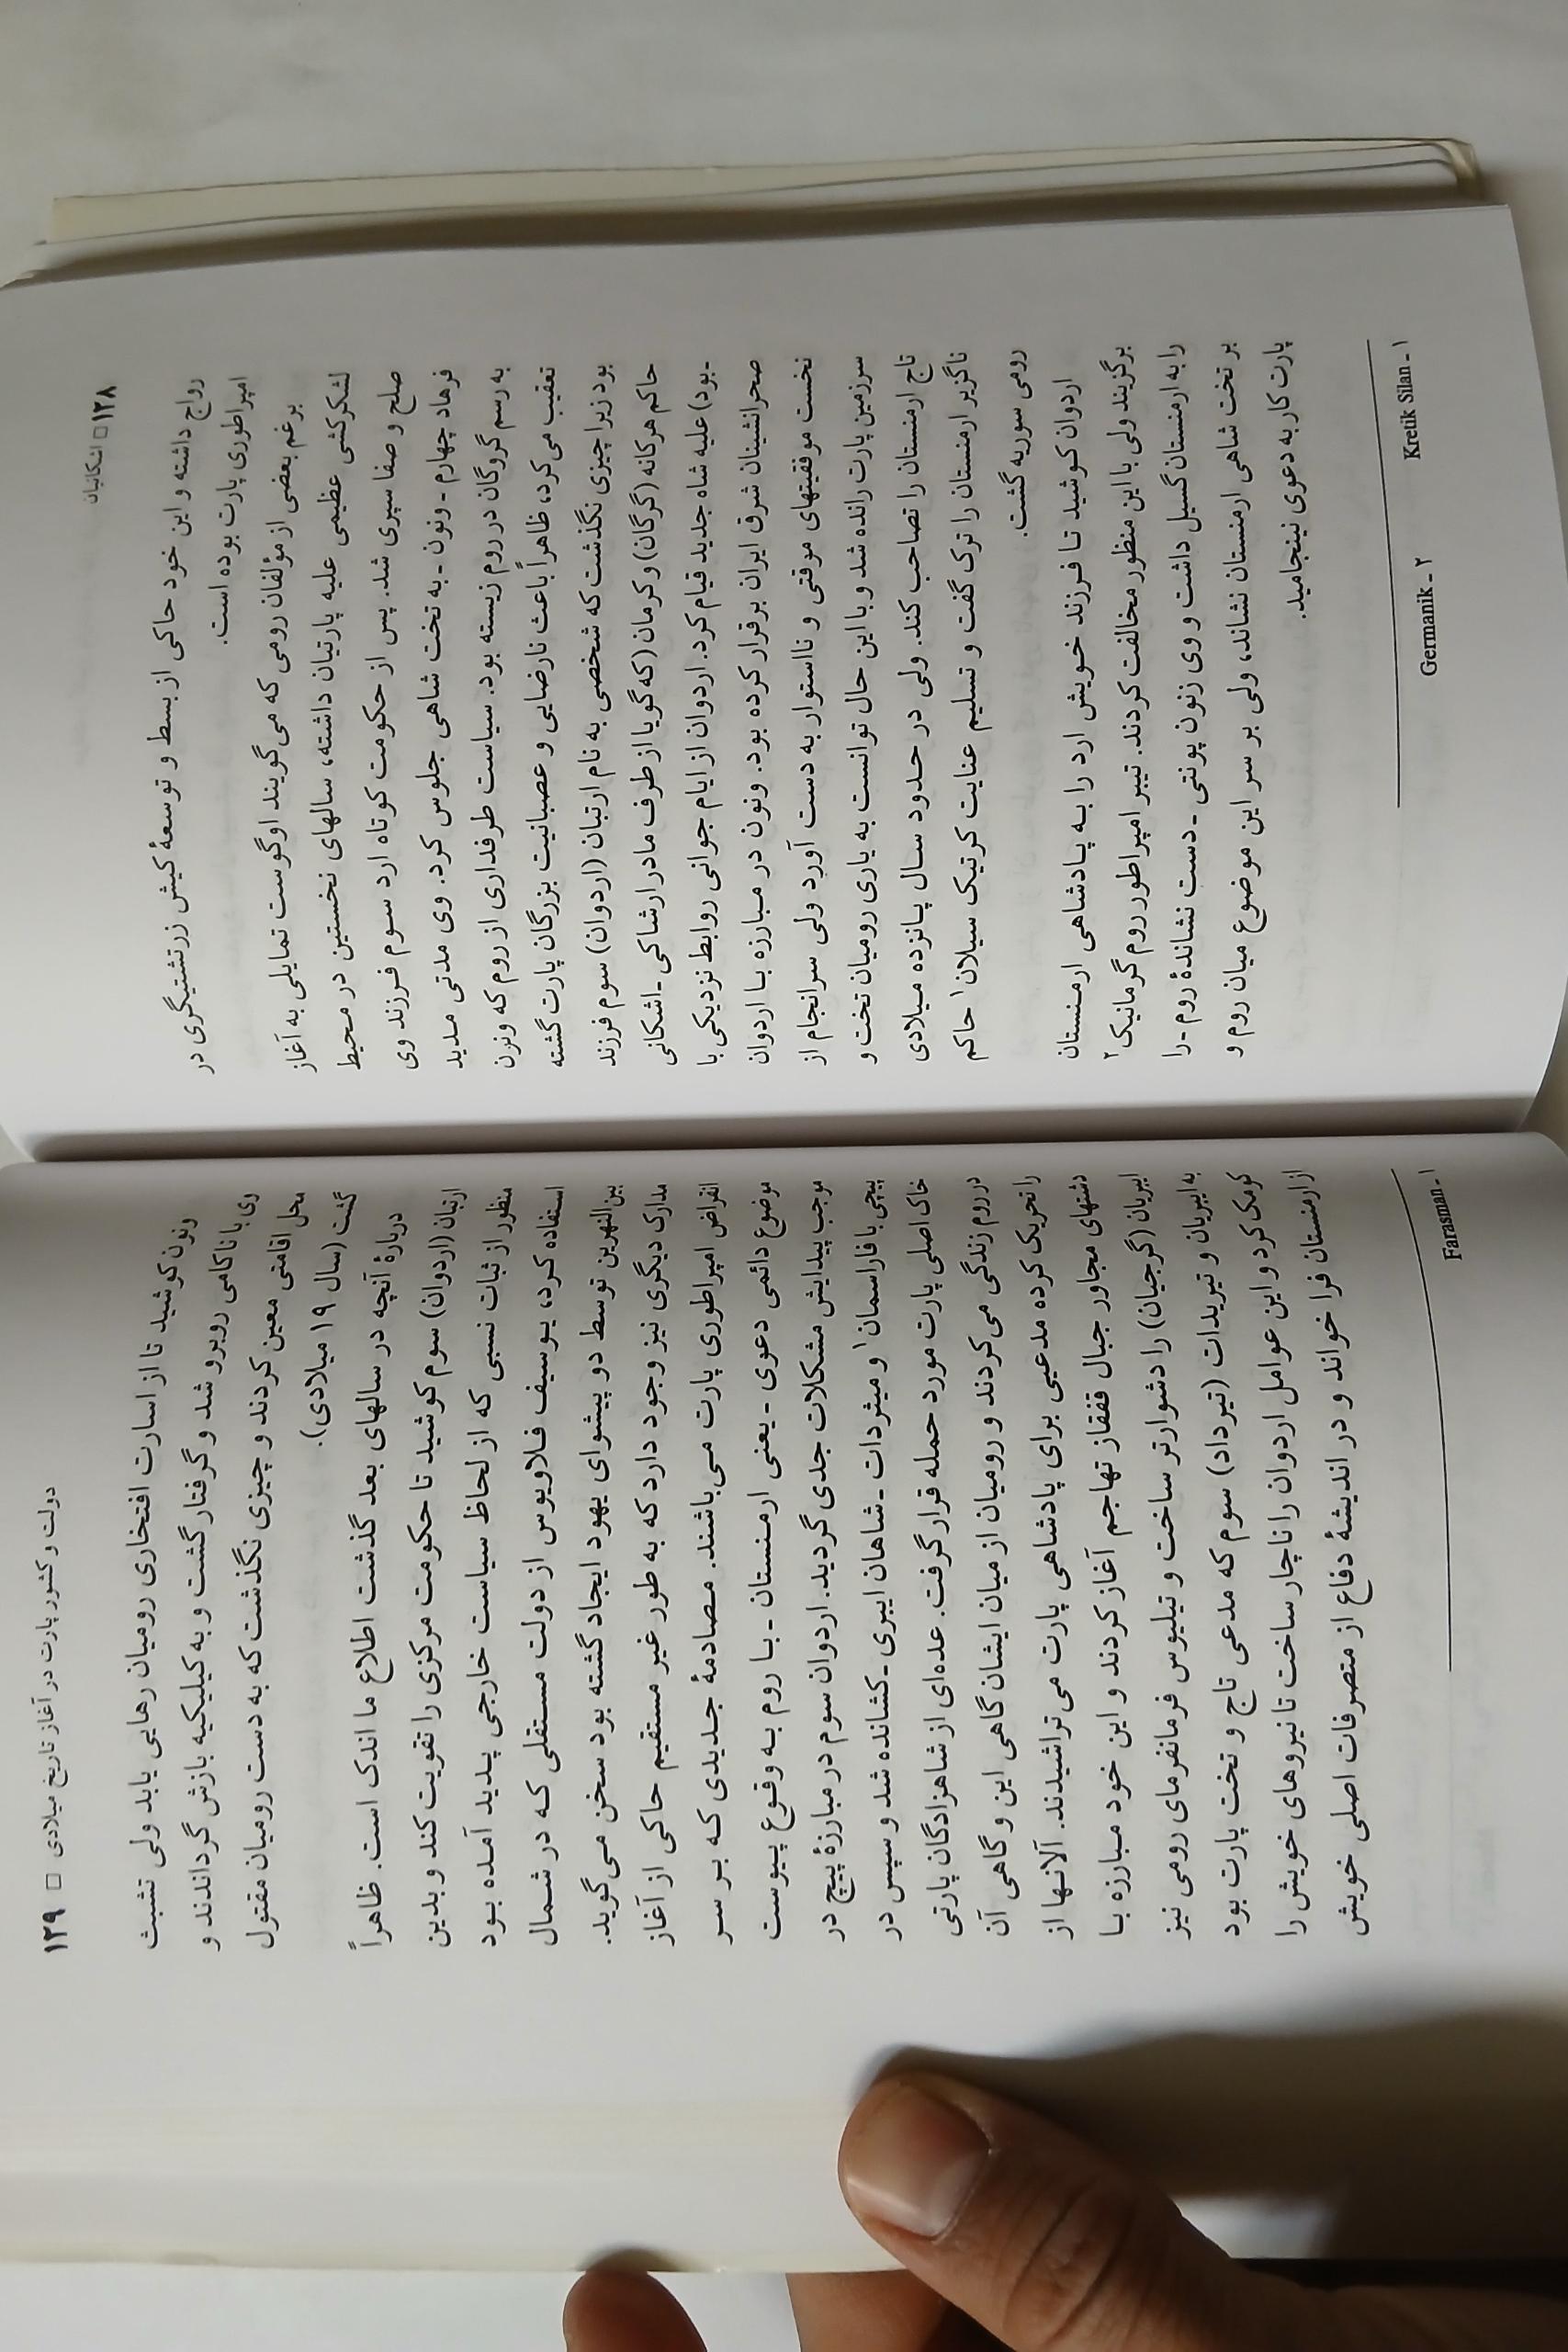 ۱۲۸ □ اشکانیان
رواج داشته و این خود حاکی از بسط و توسعهٔ کیش زرتشتیگری در
امپراطوری پارت بوده است.
برغم بعضی از مؤلفان رومی که می‌گویند اوگوست تمایلی به آغاز
لشکرکشی عظیمی علیه پارتیان داشته، سالهای نخستین در محیط
صلح و صفا سپری شد. پس از حکومت کوتاه ارد سوم فرزند وی
فرهاد چهارم ـ ونون ـ به تخت شاهی جلوس کرد. وی مدتی مدید
به رسم گروگان در روم زیسته بود. سیاست طرفداری از روم که ونون
تعقیب می‌کرد، ظاهراً باعث نارضایی و عصبانیت بزرگان پارت گشته
بود زیرا چیزی نگذشت که شخصی به نام ارتبان (اردوان) سوم فرزند
حاکم هرکانه (گرگان) و کرمان (که گویا از طرف مادر ارشاکی ـ اشکانی
ـ بود) علیه شاه جدید قیام کرد. اردوان از ایام جوانی روابط نزدیکی با
صحرانشینان شرق ایران برقرار کرده بود. ونون در مبارزه با اردوان
نخست موفقیتهای موقتی و نااستوار به دست آورد ولی سرانجام از
سرزمین پارت رانده شد و با این حال توانست به یاری رومیان تخت و
تاج ارمنستان را تصاحب کند. ولی در حدود سال پانزده میلادی
ناگزیر ارمنستان را ترک گفت و تسلیم عنایت کرتیک سیلان۱ حاکم
رومی سوریه گشت.
اردوان کوشید تا فرزند خویش ارد را به پادشاهی ارمنستان
برگزیند ولی با این منظور مخالفت کردند. تیبر امپراطور روم گرمانیک۲
را به ارمنستان گسیل داشت و وی زنون پونتی ـ دست نشاندهٔ روم ـ را
بر تخت شاهی ارمنستان نشاند، ولی بر سر این موضوع میان روم و
پارت کار به دعوی نینجامید.
۱ ـ Kretik Silan
۲ ـ Germanik
دولت و کشور پارت در آغاز تاریخ میلادی □ ۱۲۹
ونون کوشید تا از اسارت افتخاری رومیان رهایی یابد ولی تشبث
وی با ناکامی روبرو شد و گرفتار گشت و به کیلیکیه بازش گرداندند و
محل اقامتی معین کردند و چیزی نگذشت که به دست رومیان مقتول
گشت (سال ۱۹ میلادی).
دربارهٔ آنچه در سالهای بعد گذشت اطلاع ما اندک است. ظاهراً
ارتبان (اردوان) سوم کوشید تا حکومت مرکزی را تقویت کند و بدین
منظور از ثبات نسبی که از لحاظ سیاست خارجی پدید آمده بود
استفاده کرد، یوسیف فلاویوس از دولت مستقلی که در شمال
بین‌النهرین توسط دو پیشوای یهود ایجاد گشته بود سخن می‌گوید.
مدارک دیگری نیز وجود دارد که به طور غیر مستقیم حاکی از آغاز
انقراض امپراطوری پارت می‌باشند. مصادمهٔ جدیدی که بر سر
موضوع دائمی دعوی ـ یعنی ارمنستان ـ با روم به وقوع پیوست
موجب پیدایش مشکلات جدی گردید. اردوان سوم در مبارزهٔ پیچ در
پیچی با فاراسمان۱ و میثردات ـ شاهان ایبری ـ کشانده شد و سپس در
خاک اصلی پارت مورد حمله قرار گرفت. عده‌ای از شاهزادگان پارتی
در روم زندگی می‌کردند و رومیان از میان ایشان گاهی این و گاهی آن
را تحریک کرده مدعیی برای پادشاهی پارت می‌تراشیدند. آلانها از
دشتهای مجاور جبال قفقاز تهاجم آغاز کردند و این خود مبارزه با
ایبریان (گرجیان) را دشوارتر ساخت و تیلیوس فرمانفرمای رومی نیز
به ایبریان و تیریدات (تیرداد) سوم که مدعی تاج و تخت پارت بود
کومک کرد و این عوامل اردوان را ناچار ساخت تا نیروهای خویش را
از ارمنستان فرا خواند و در اندیشهٔ دفاع از متصرفات اصلی خویش
۱ ـ Farasman